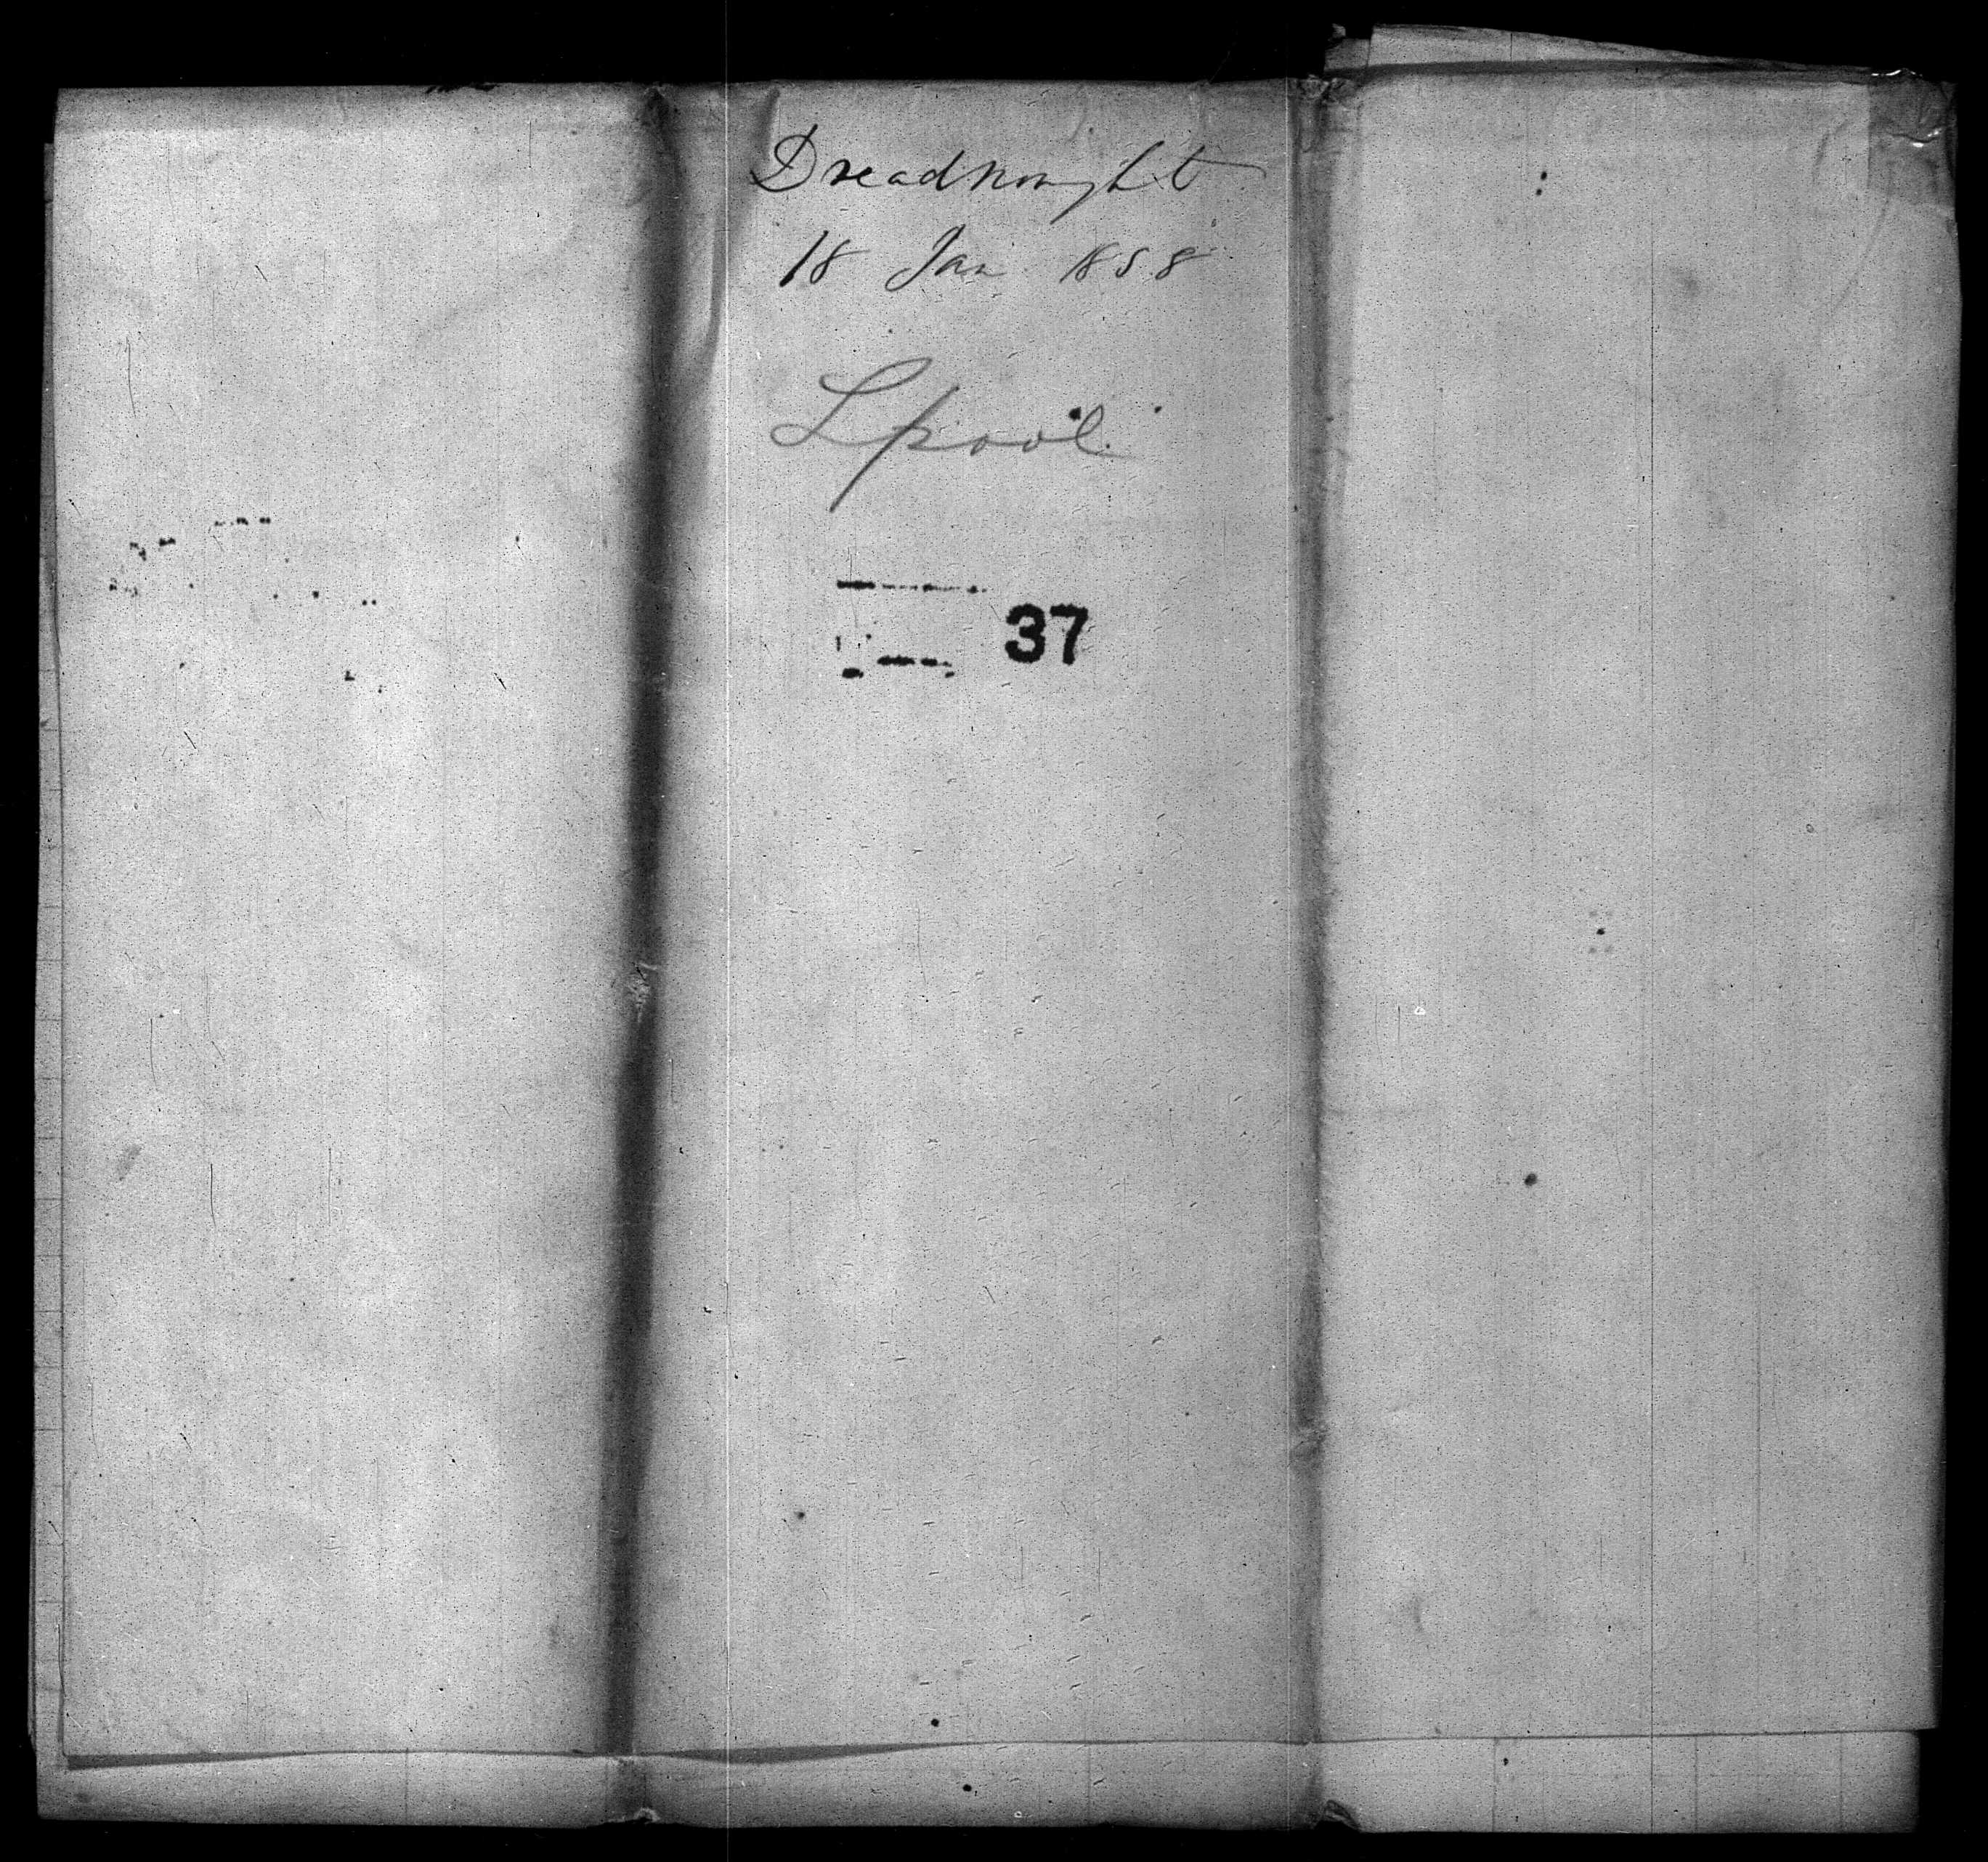 Dreadnought
18 Jan 1858
Lpool
37